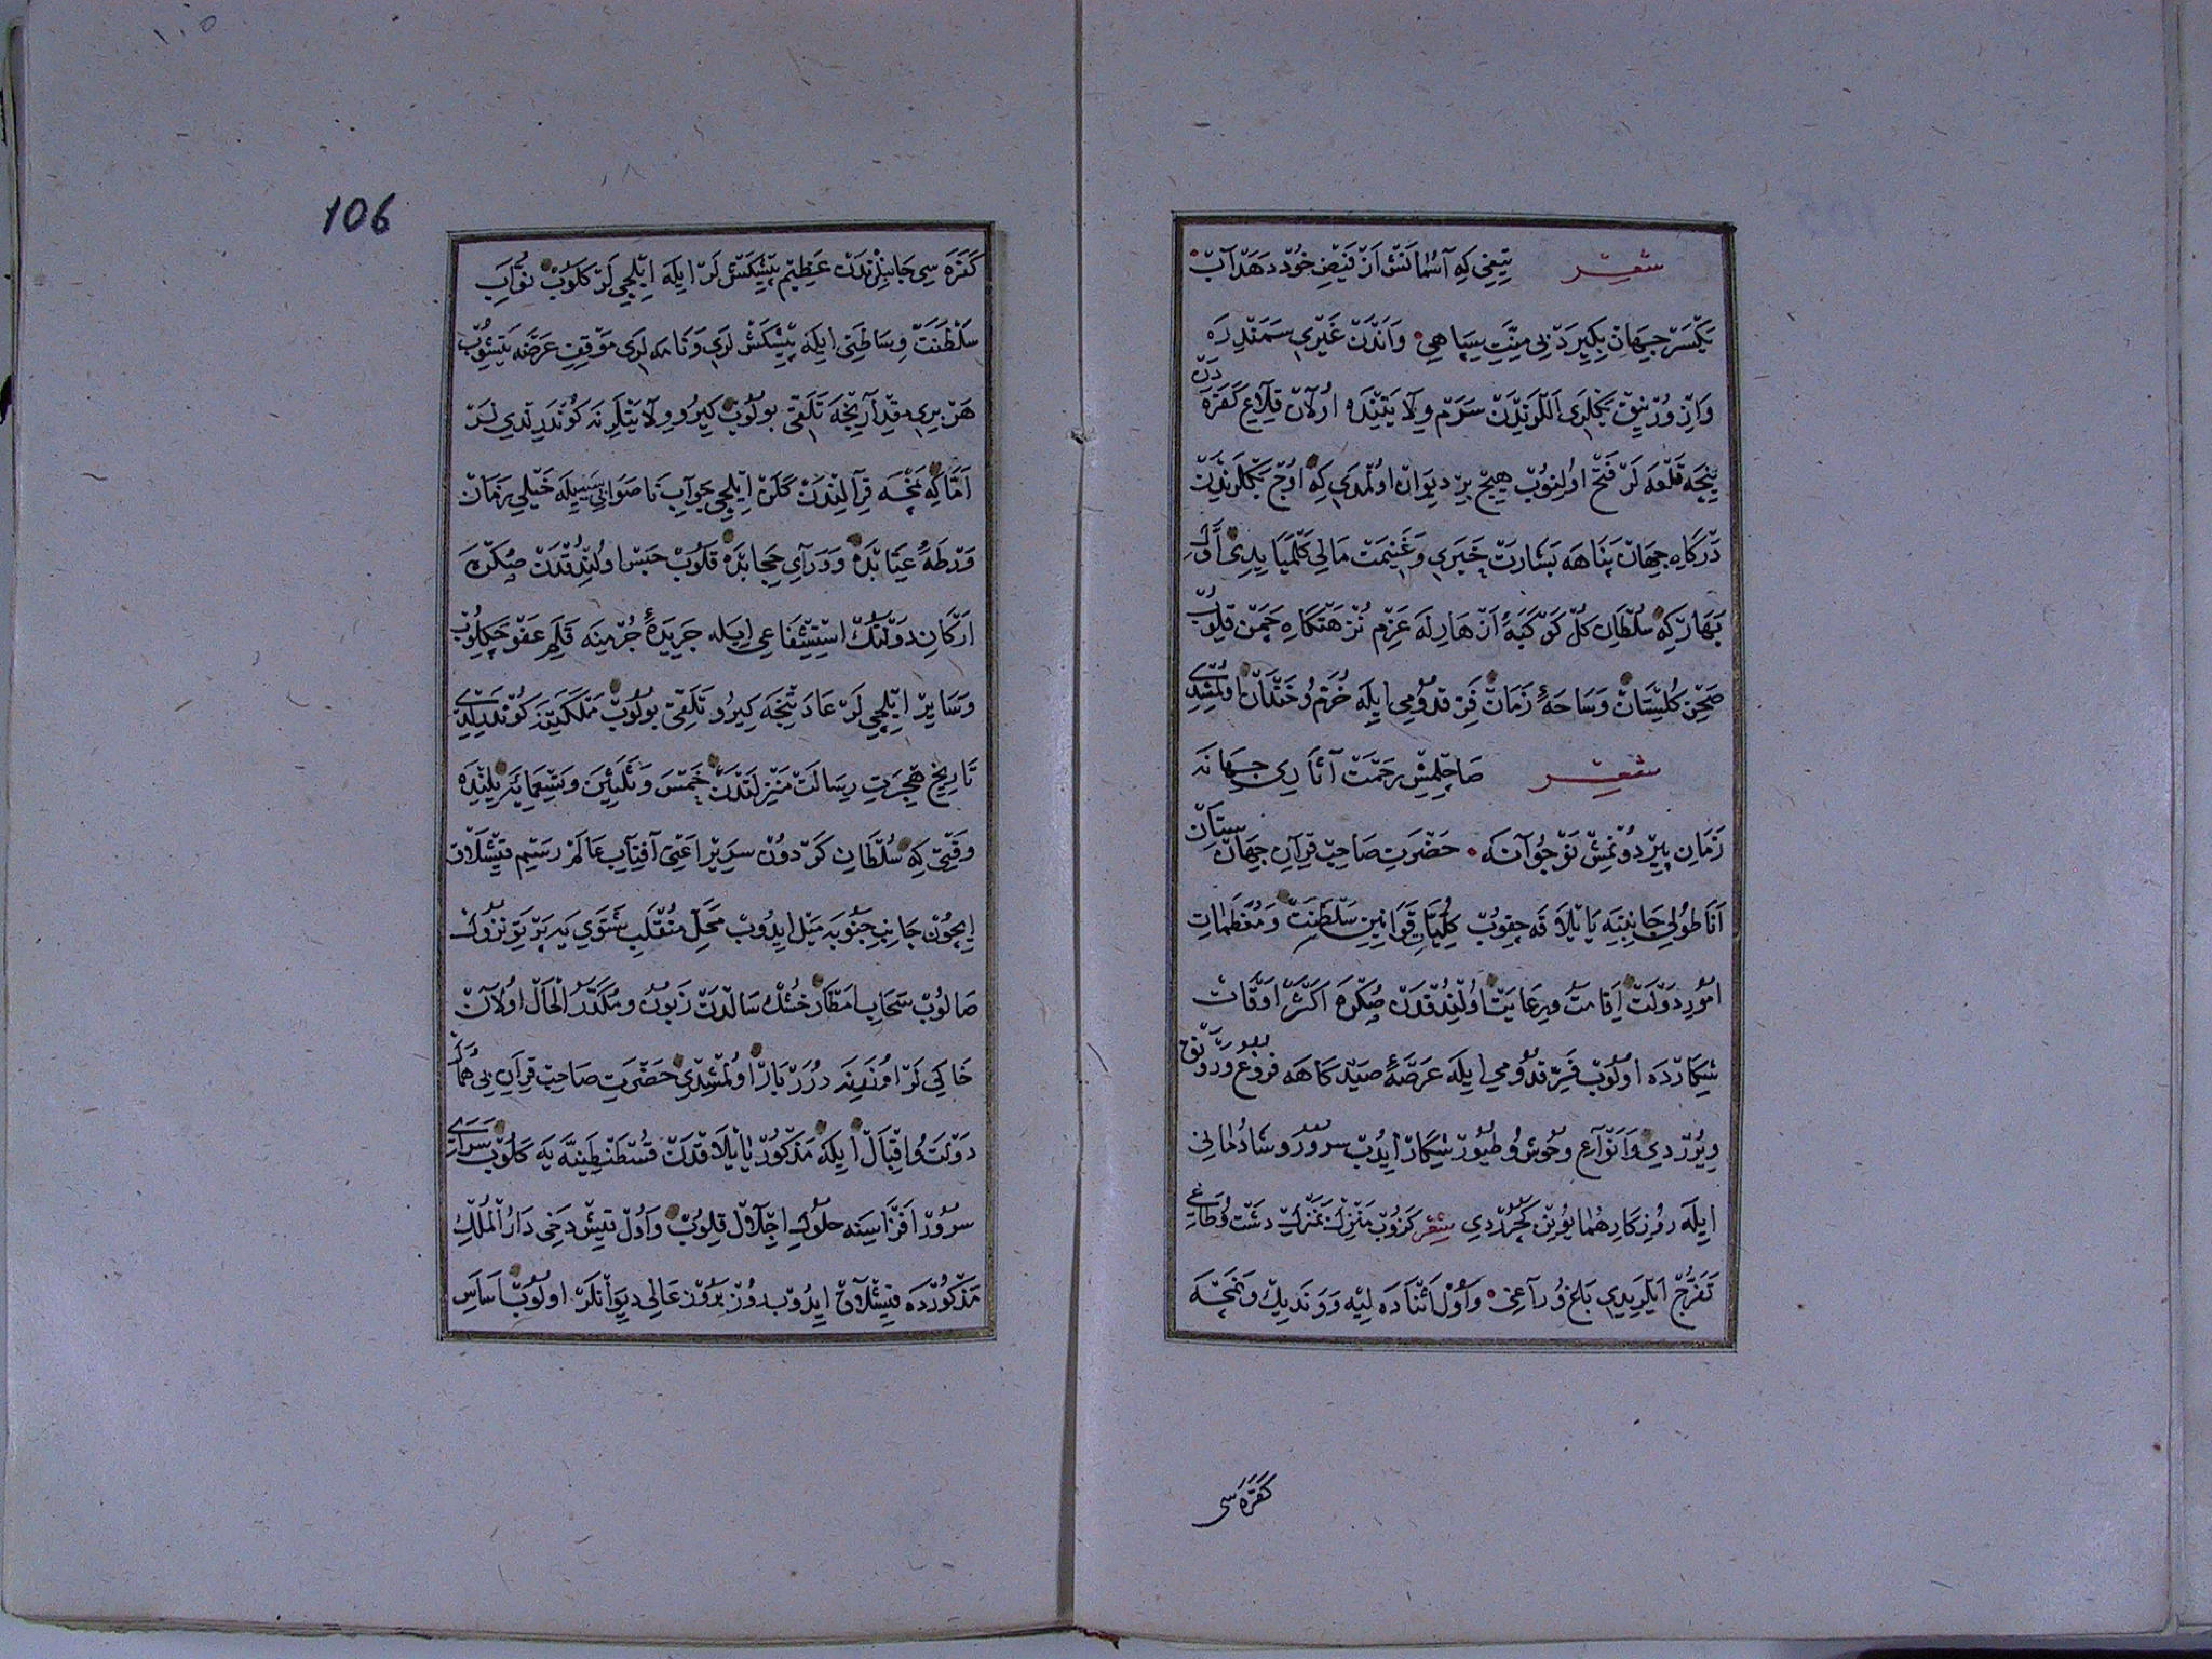 شعر تیغی که آسمانش از فیض خود دهد آب
یکسر جهان بگیرد بی منت سپاهی وَاندن غیری سمندره
وان ورنیق بکلری اللرندن سرم ولایتنده اولان قلاع کفره دن
نیجه قلعه لر فتح اولنوب هیچ بر دیوان اولمدی که اوج بکلرندن
درکاه جهان پناهه بشارت خبری و غنیمت مالی کلمیایدی اول
بهار که سلطان کل کوکبهٔ ازهارله عزم نزهتکاه چمن قلوب
صحن کلستان و ساحهٔ زمان فر قدومی ایله خرم و خندان اولمشدی
شعر صاچلمش رحمت آثاری جهانه
زمان پیر دونمش نوجوانه حضرت صاحب قران جهان ستان
اناطولی جانبنه یایلاقه چقوب کلیات قوانین سلطنت و معظمات
امور دولت اقامت و رعایت اولندقدن صکره اکثر اوقات
شکارده اولوب فر قدومی ایله عرصهٔ صیدکاهه فروغ و رونق
ویرردی و انواع وحوش و طیور شکار ایدوب سرور و شادمانی
ایله روزکار همایونن کچرردی شعر کزوب منزل بمنزل دشت و طاغی
تفرج ایلریدی باغ و راغی و اول اثناده لیه و وندیك و نمچه
کفره سی
106
کفره سی جانبلرندن عظیم پیشکشلر ایله ایلچی لر کلوب نواب
سلطنت وساطتی ایله پیشکش لری و نامه لری موقف عرضه یتشوب
هر بری قد آرینجه تلقی بولوب کیرو ولایتلرنه کوندرلدیلر
اما که نمچه قرالندن کلن ایلچی جواب ناصوابی سببیله خیلی زمان
ورطهٔ عتابده و ورای حجابده قلوب حبس اولندقدن صکره
ارکان دولتك استشفاعی ایله جریدهٔ جرمنه قلم عفو چکلوب
و سایر ایلچی لر عادتنجه کیرو تلقی بولوب مملکتنه کوندرلدی
تاریخ هجرت رسالت منزلتدن خمس و ثلثین و تسعمایه ییلنده
وقتی که سلطان کردون سریر اعنی آفتاب عالمکیر رسم قیشلاق
ایچون جانب جنوبه میل ایدوب محل منقلب شتوی یه پرتو نزول
صالوب سحاب امطار خشك سالدن زبون و مکدر الحال اولان
خاکی لر اوزرینه درر بار اولمشدی حضرت صاحب قران بی همال
دولت و اقبال ایله مذکور یایلاقدن قسطنطینیه یه کلوب سرای
سرور افزاسنه حلول اجلال قلوب و اول قیش دخی دار الملك
مذکورده قیشلاق ایدوب روز بروز عالی دیوانلر اولوب اساس